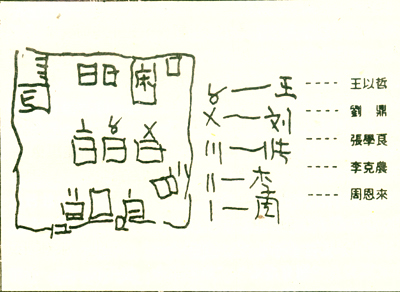 王 ---- 王以哲
X — 刘 ---- 劉 鼎
||| — 张 ---- 張學良
|| — 李 ---- 李克農
| — 周 ---- 周恩來